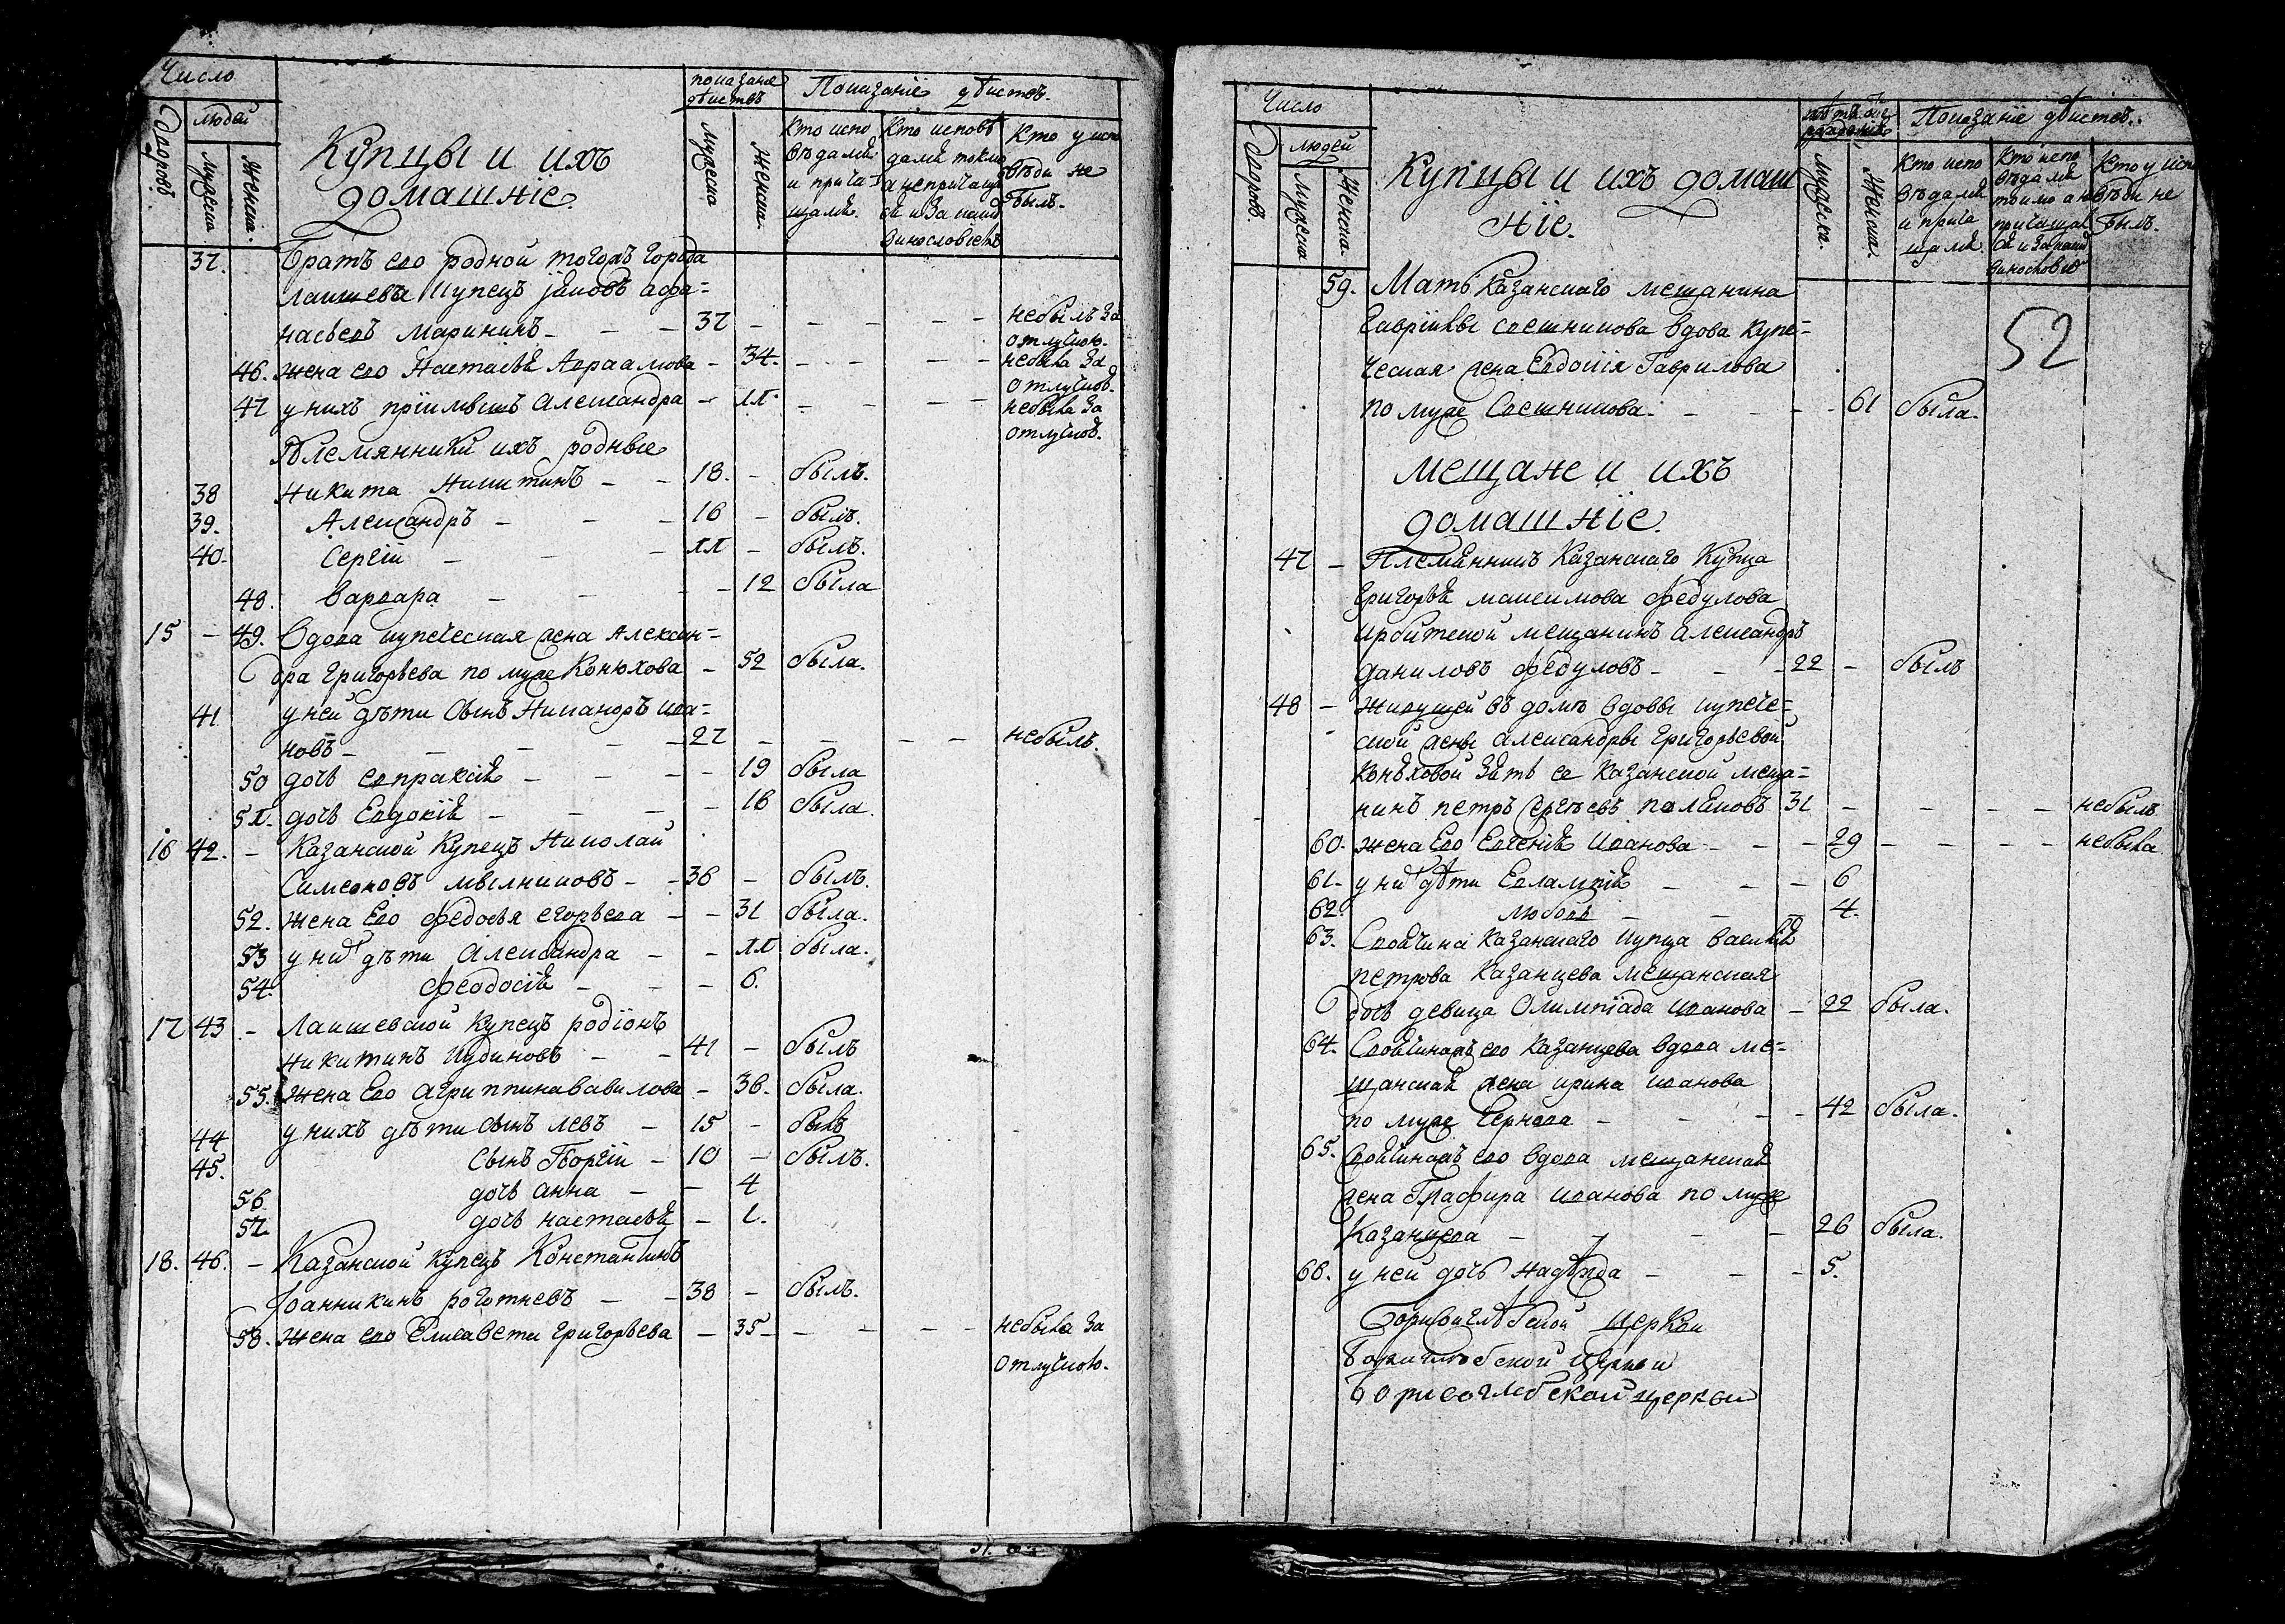 Число
людей
Дворовъ.
Мужеска
Женска.
Купцы и ихъ
домашніе.
Мужеска
Женска.
Показаніе дѣиствъ.
Кто испо
вѣдался
и прича
щался.
Кто исповѣ
дался токмо
а непричаща
ся и за каким
винословіемъ
Кто у испо
вѣди не
былъ.
37. Братъ его родной тогожъ города
Лаишева купецъ Іяковъ Афа=
насьевъ Маринин – – 37 – – – – – небылъ за
отлучкою.
46. жена его Настасья Авраамова – 34. – – – – небыла за
отлучкою.
47 у нихъ пріимышъ Александра – 11. – – – – небыла за
отлучкою.
Племянники ихъ родные
38 Никита Никитинъ – – 18. – былъ.
39. Александръ – – – 16 – былъ.
40. Сергій – – – 11 – былъ.
48. Варвара – – – – 12 была
15 – 49. Вдова купеческая жена Алексан=
дра Григорьева по муже Конюхова – 52 была.
41 у ней дѣти сынъ Никаноръ Ива=
новъ – – – – 27 – – – – небылъ.
50 дочь Евпраксія – – – – 19 была
51. дочь Евдокія – – – – 16 была.
16 42. – Казанской купецъ Николай
Симеоновъ Мыльниковъ – – 36 – былъ.
52. жена Его Федосья Егорьева – – 31 была.
53 у них дѣти Александра – – 11 была.
54. Феодосія – – – 6.
17 43 – Лаишевской купецъ Родіонъ
Никитинъ – – 41 – былъ
55. жена Его Агриппина Вавилова – 36. была.
44 у нихъ дѣти сынъ Левъ – 15 – былъ
45. сынъ Георгій – 10 – былъ.
56. дочь Анна – – 4
57. дочь Настасья – 1.
18. 46. – Казанской купецъ Константинъ
Іоанникинъ Роготневъ – – 38 – былъ.
58. жена его Елисавета Григорьева – 35 – – – – – небыла за
отлучкою.
Число
людей
Дворовъ
Мужеска
Женска.
Купцы и ихъ домаш
ніе.
Мужеска.
Женска.
Показаніе дѣиствъ.
Кто испо
вѣдался
и прича
щался.
Кто испо
вѣдался
токмо а не
причащал
ся и за каким
винословіе
Кто у испо
вѣди не
былъ.
52
59. Мать Казанскаго мещанина
Гаврійлы Свешникова вдова купе=
ческая жена Евдокія Гаврилова
по муже Свешникова. – – – 61 была.
Мещане и ихъ
домашніе.
47 – Племянникъ Казанскаго купца
Григорья Максимова Федулова
Ирбитской мещанинъ Александръ
Даниловъ Федуловъ – – – 22 – былъ
48 – живущей въ доме вдовы купече=
ской жены Александры Григорьевой
Конюховой зять ее Казанской меща=
нинъ Петръ Сергѣевъ Поляковъ 31 – – – – небылъ
60. жена Его Евгенія Иванова – – – 29 – – – – небыла
61. у них дѣти Евлампія – – – 6
62. Любовь – – – 4.
63. Своячина Казанскаго купца Василья
Петрова Казанцева мещанская
дочь девица Олимпіада Иванова – 22 была.
64. Своячинажъ его Казанцева вдова ме=
щанская жена Ирина Иванова
по муже Чернова – – – – 42 была.
65. Своячинажъ его вдова мещанская
жена Глафира Иванова по муже
Казанцева – – – – 26 была.
66. у ней дочь Надѣжда – – – 5.
Борисоглѣбской церкви
Борисоглебской церкви
Борисоглебской церкви